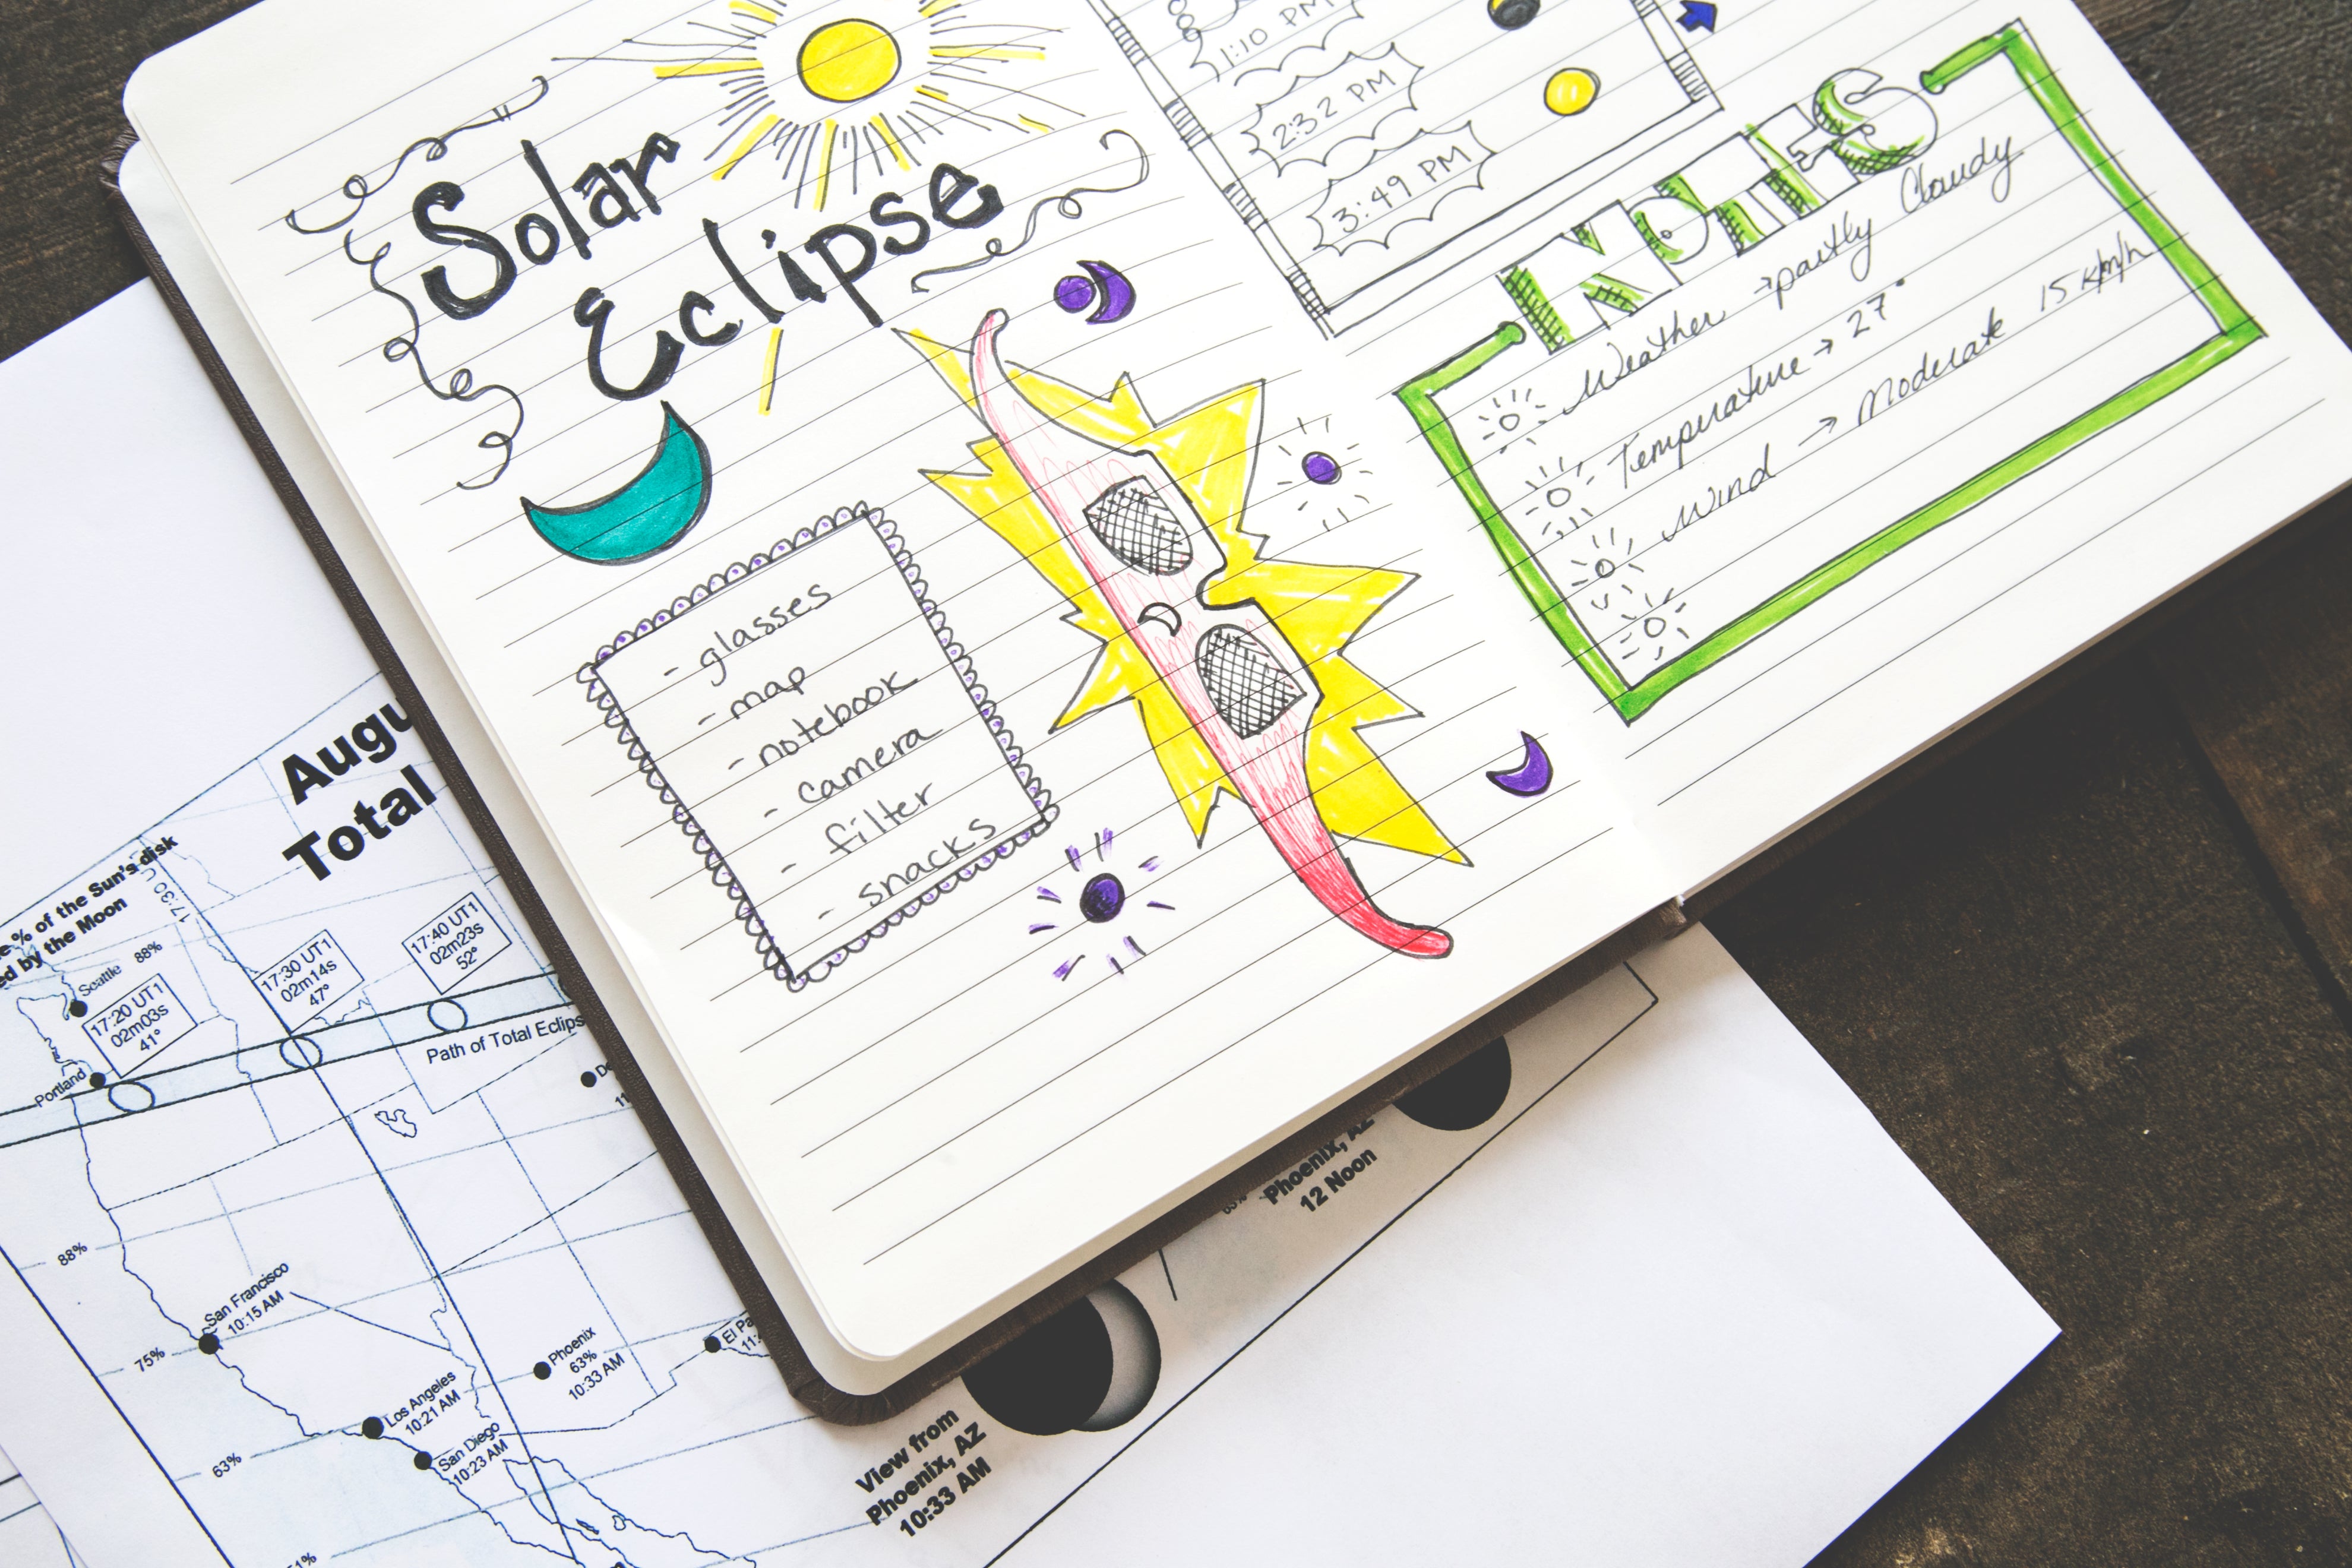 Solar
Eclipse
- glasses
- map
- notebook
- camera
- filter
- snacks
1:10 PM
2:32 PM
3:49 PM
NOTES
Weather → partly Cloudy
Temperature → 27°
Wind → Moderate 15 km/h
Augu
Total
% of the Sun's disk
ed by the Moon
Seattle
88%
17:30
17:20 UT1
02m03s
41°
17:30 UT1
02m14s
47°
17:40 UT1
02m23s
52°
Portland
Path of Total Eclips
88%
San Francisco
10:15 AM
75%
Los Angeles
10:21 AM
San Diego
10:23 AM
63%
Phoenix
63%
10:33 AM
El Pa
View from
Phoenix, AZ
10:33 AM
Phoenix, AZ
12 Noon